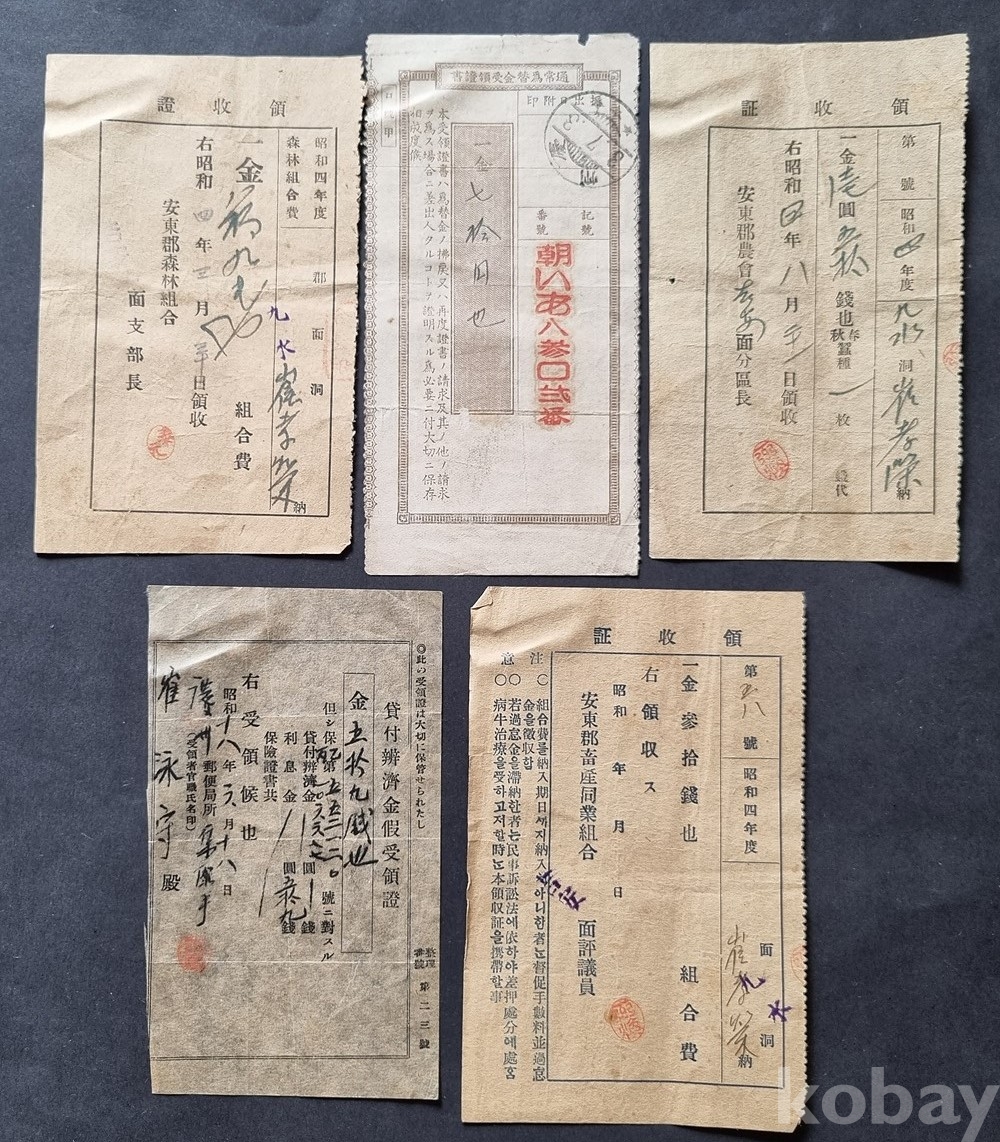 領收證
昭和四年度
森林組合費
郡 面 洞
九水 崔孝榮 納
一金 組合費
右昭和四年三月 日領收
安東郡森林組合
面支部長
通常爲替金受領證書
振出日附印
記號
番號
朝いあ八参〇弐番
一金七拾円也
本受領證書ハ爲替金ノ拂戻又ハ再度證書ノ請求及其ノ他ノ請求
ヲ爲ス場合ニ差出人タルコトヲ證明スル爲必要ニ付大切ニ保存
相成度候
領收証
第 號 昭和四年度 九水洞 崔孝榮 納
一金壱圓五拾錢也
春秋蠶種 一枚 代
右昭和四年八月 日領收
安東郡農會吉安面分區長
◎此の受領證は大切に保管せられたし
貸付辨濟金假受領證
金五拾九錢也
但シ保 號ニ對スル
貸付辨濟金 圓 錢
利息金 圓 五拾九錢
保險證書共
右受領候也
昭和十八年六月十八日
郵便局所
(受領者官職氏名印)
崔泳宇殿
整理番號 第二三號
領收証
第五八號 昭和四年度 面 九水洞 崔孝榮 納
一金參拾錢也 組合費
右領収ス
昭和 年 月 日
安東郡畜産同業組合 吉安面評議員
注意
〇組合費를納入期日까지納入아니한者는督促手數料並過怠
金을徵収함
〇若過怠金을滯納한者는民事訴訟法에依하야差押處分에處홈
〇病牛治療을受하고저할時는本領収証을携帶할事
kobay